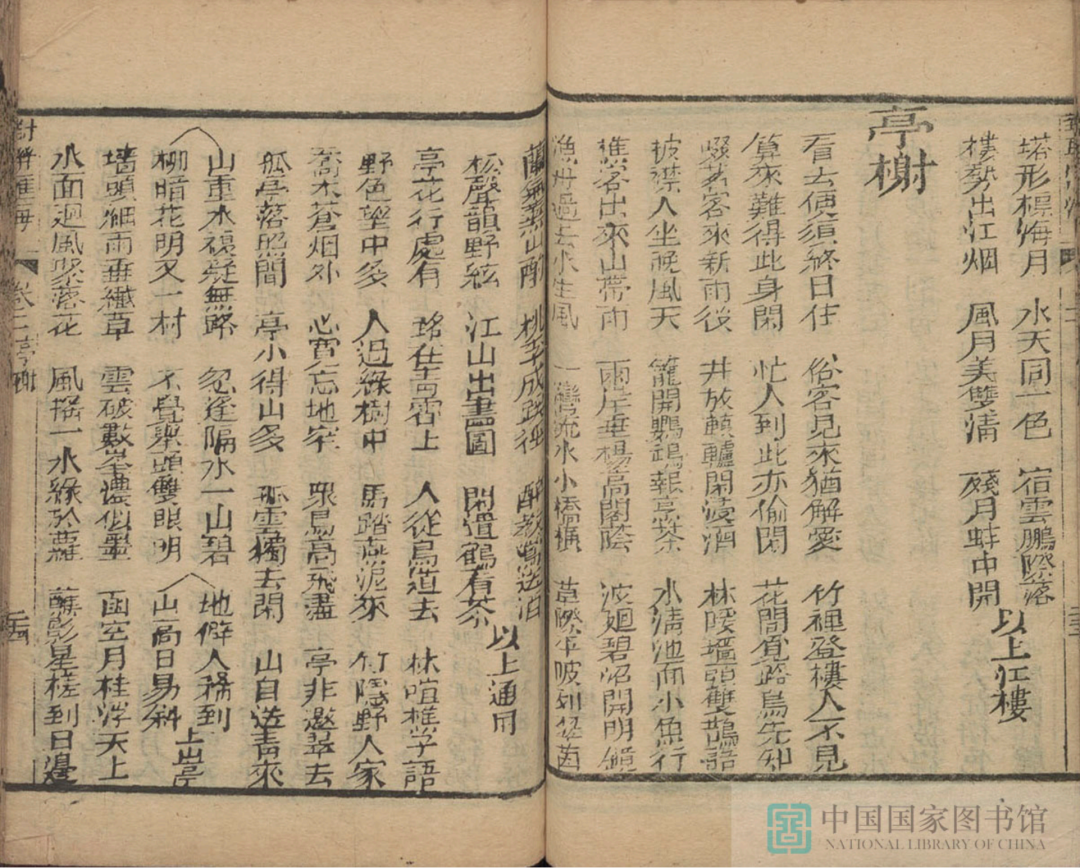 塔形標海月　水天同一色　宿雲鵬際落
樓勢出江烟　風月美雙清　殘月蚌中開　以上江樓
亭榭
看去便須終日住　俗客見來猶解愛　竹裡登樓人不見
算來難得此身閑　忙人到此亦偷閑　花間覓路鳥先知
啜茗客來新雨後　井放轆轤閑浸酒　林陵墻頭雙鵲語
披襟人坐晚風天　籠開鸚鵡報煎茶　水清池面小魚行
樵客出來山帶雨　雨岸垂楊高閣陰　波廻碧沼開明鏡
漁舟過去水生風　一灣流水小橋橫　草際平坡列翠茵
山醉　桃李成蹊徑
松聲韻野絃　江山出畫圖　閑選鶴看茶　以上通用
亭花行處有　路在青霄上　人從鳥道去　林喧樵学語
野色望中多　人過綠樹中　馬踏燕泥來　竹隱野人家
喬木蒼烟外　心寛忘地窄　衆鳥高飛盡　亭非邀翠去
孤亭落照間　亭小得山多　孤雲獨去閑　山自送青來
山重水複疑無路　忽逢隔水一山碧　地僻人稀到
柳暗花明又一村　不覺舉頭雙眼明　山高日易斜　上山亭
墻頭細雨垂纖草　雲破數峯濃似墨　函空月桂浮天上
水面廻風聚落花　風搖一水綠於蘿　蘸影星槎到日邊
卷二　亭榭
中国国家图书馆
NATIONAL LIBRARY OF CHINA